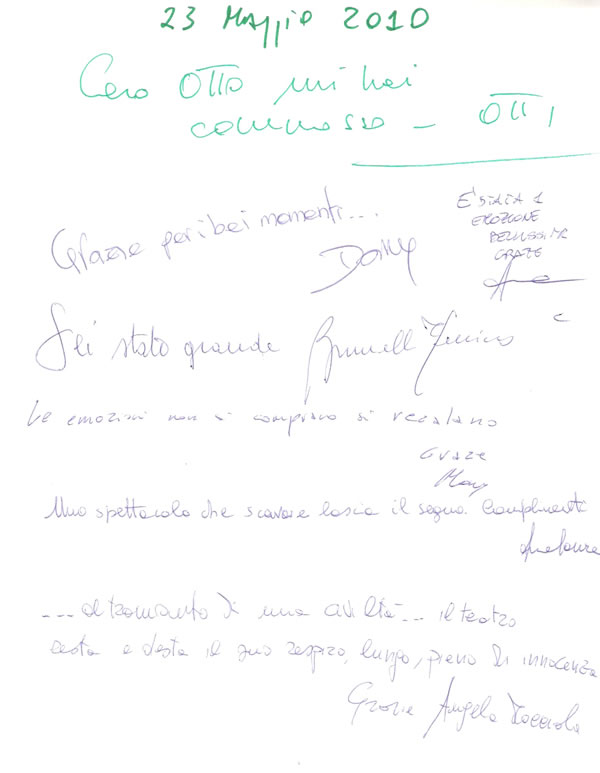 23 Maggio 2010
Caro OTTO mi hai
commosso - OTTI
Grazie per i bei momenti...
E' STATA 1
EMOZIONE
BELLISSIMA
GRAZIE
Sei stato grande
Le emozioni non si comprano si regalano
Grazie
Uno spettacolo che scavare lascia il segno. Complimenti
... al tramonto di una civiltà... il teatro
resta e desta il suo respiro, lungo, pieno di innocenza
Grazie Angela